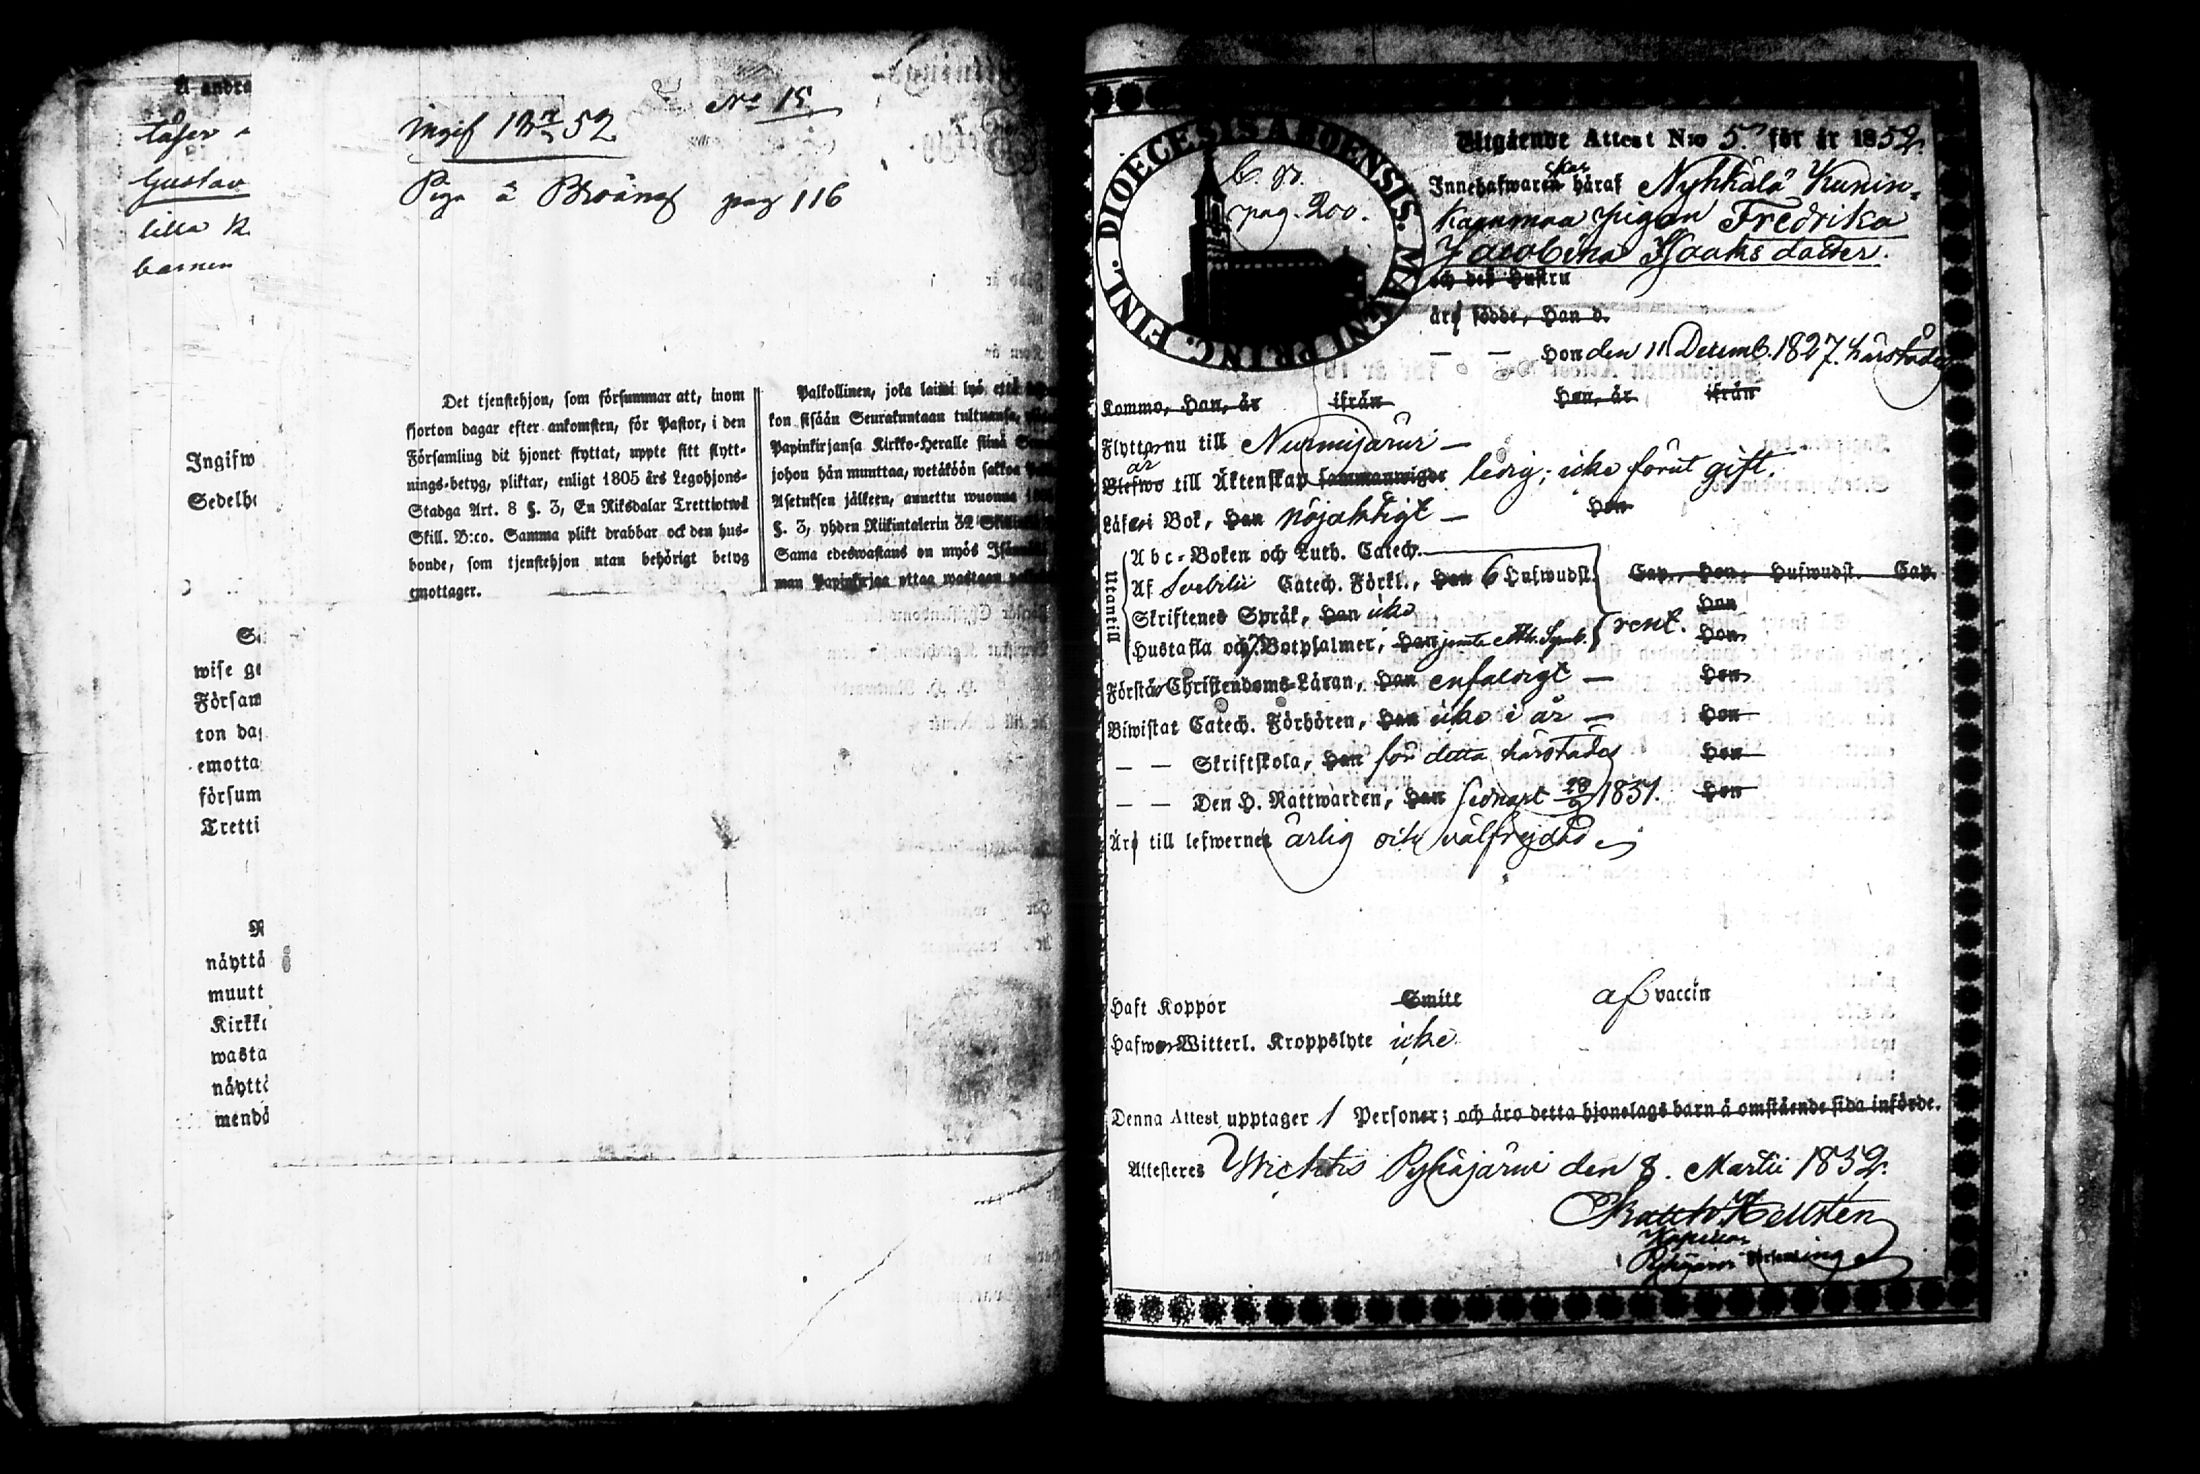 A andra
Gustav
lilla
barnen
Ingifw
Sedelh
wise ge
Försam
ton dag
emotta
försum
Tretti
näyttä
muutt
Kirkk
wasta
näyttä
mendä
No 15
Ingif 52
Piga å pag 116
Det tjenstehjon, som försummar att, inom
fjorton dagar efter ankomsten, för Pastor, i den
Församling dit hjonet flyttat, uppte sitt flytt-
nings-betyg, pliktar, enligt 1805 års Legohjons-
Stadga Art. 8 §. 3, En Riksdalar Trettiotwå
Skill. B:co. Samma plikt drabbar ock den hus-
bonde, som tjenstehjon utan behörigt betyg
emottager.
Palkollinen, joka laimi lyö, että
kon sisään Seurakuntaan tultuansa,
Papinkirjansa Kirkko-Heralle
johon hän muuttaa, wetäköön sakkoa
Asetuksen jälkeen, annettu wuonna
§. 3, yhden Riikintalerin 32
Sama edeswastaus on myös
man Papinkirjaa ottaa wastaan
DIOECESIS ABOENSIS. MAGNI PRINC. FINL.
pag. 200.
Utgående Attest N:o 5. för år 1852.
Innehafwaren häraf Nyhkälä Kunin-
kaanmaa pigan Fredrika
Jacobina Isaaks dotter.
och des Hustru
äro födde, Han d.
— — Hon den 11 Decemb. 1827. härstädes
Kommo, Han, år ifrån Hon, år ifrån
Flyttar nu till Nurmijärvi —
är
Blefwo till Äktenskap sammanwigde ledig; icke förut gift.
Läser i Bok, Han nöjaktigt — Hon
Utantill
Abc-Boken och Luth. Catech.
Af Svebilii Catech. Förkl., Han 6 Hufwudst. Cap., Hon Hufwudst. Cap.
Skriftenes Språk, Han icke Hon
Hustafla och 7 Botpsalmer, Han jemte Ath. Symb. rent. Hon
Förstår Christendoms-Läran, Han enfaldigt — Hon
Biwistat Catech. Förhören, Han icke i år — Hon
— — Skriftskola, Han för detta härstädes Hon
— — Den H. Nattwarden, Han 1851. Hon
Äro till lefwernet ärlig och välfrejdad
Haft Koppor Smitt af vaccin
Hafwer Witterl. Kroppslyte icke
Denna Attest upptager 1 Personer; och äro detta hjonelags barn å omstående sida införde.
Attesteras Wichtis Pyhäjärvi den 8. Martii 1852.
Hellstén
Kapellan
Pyhäjärvi Församling